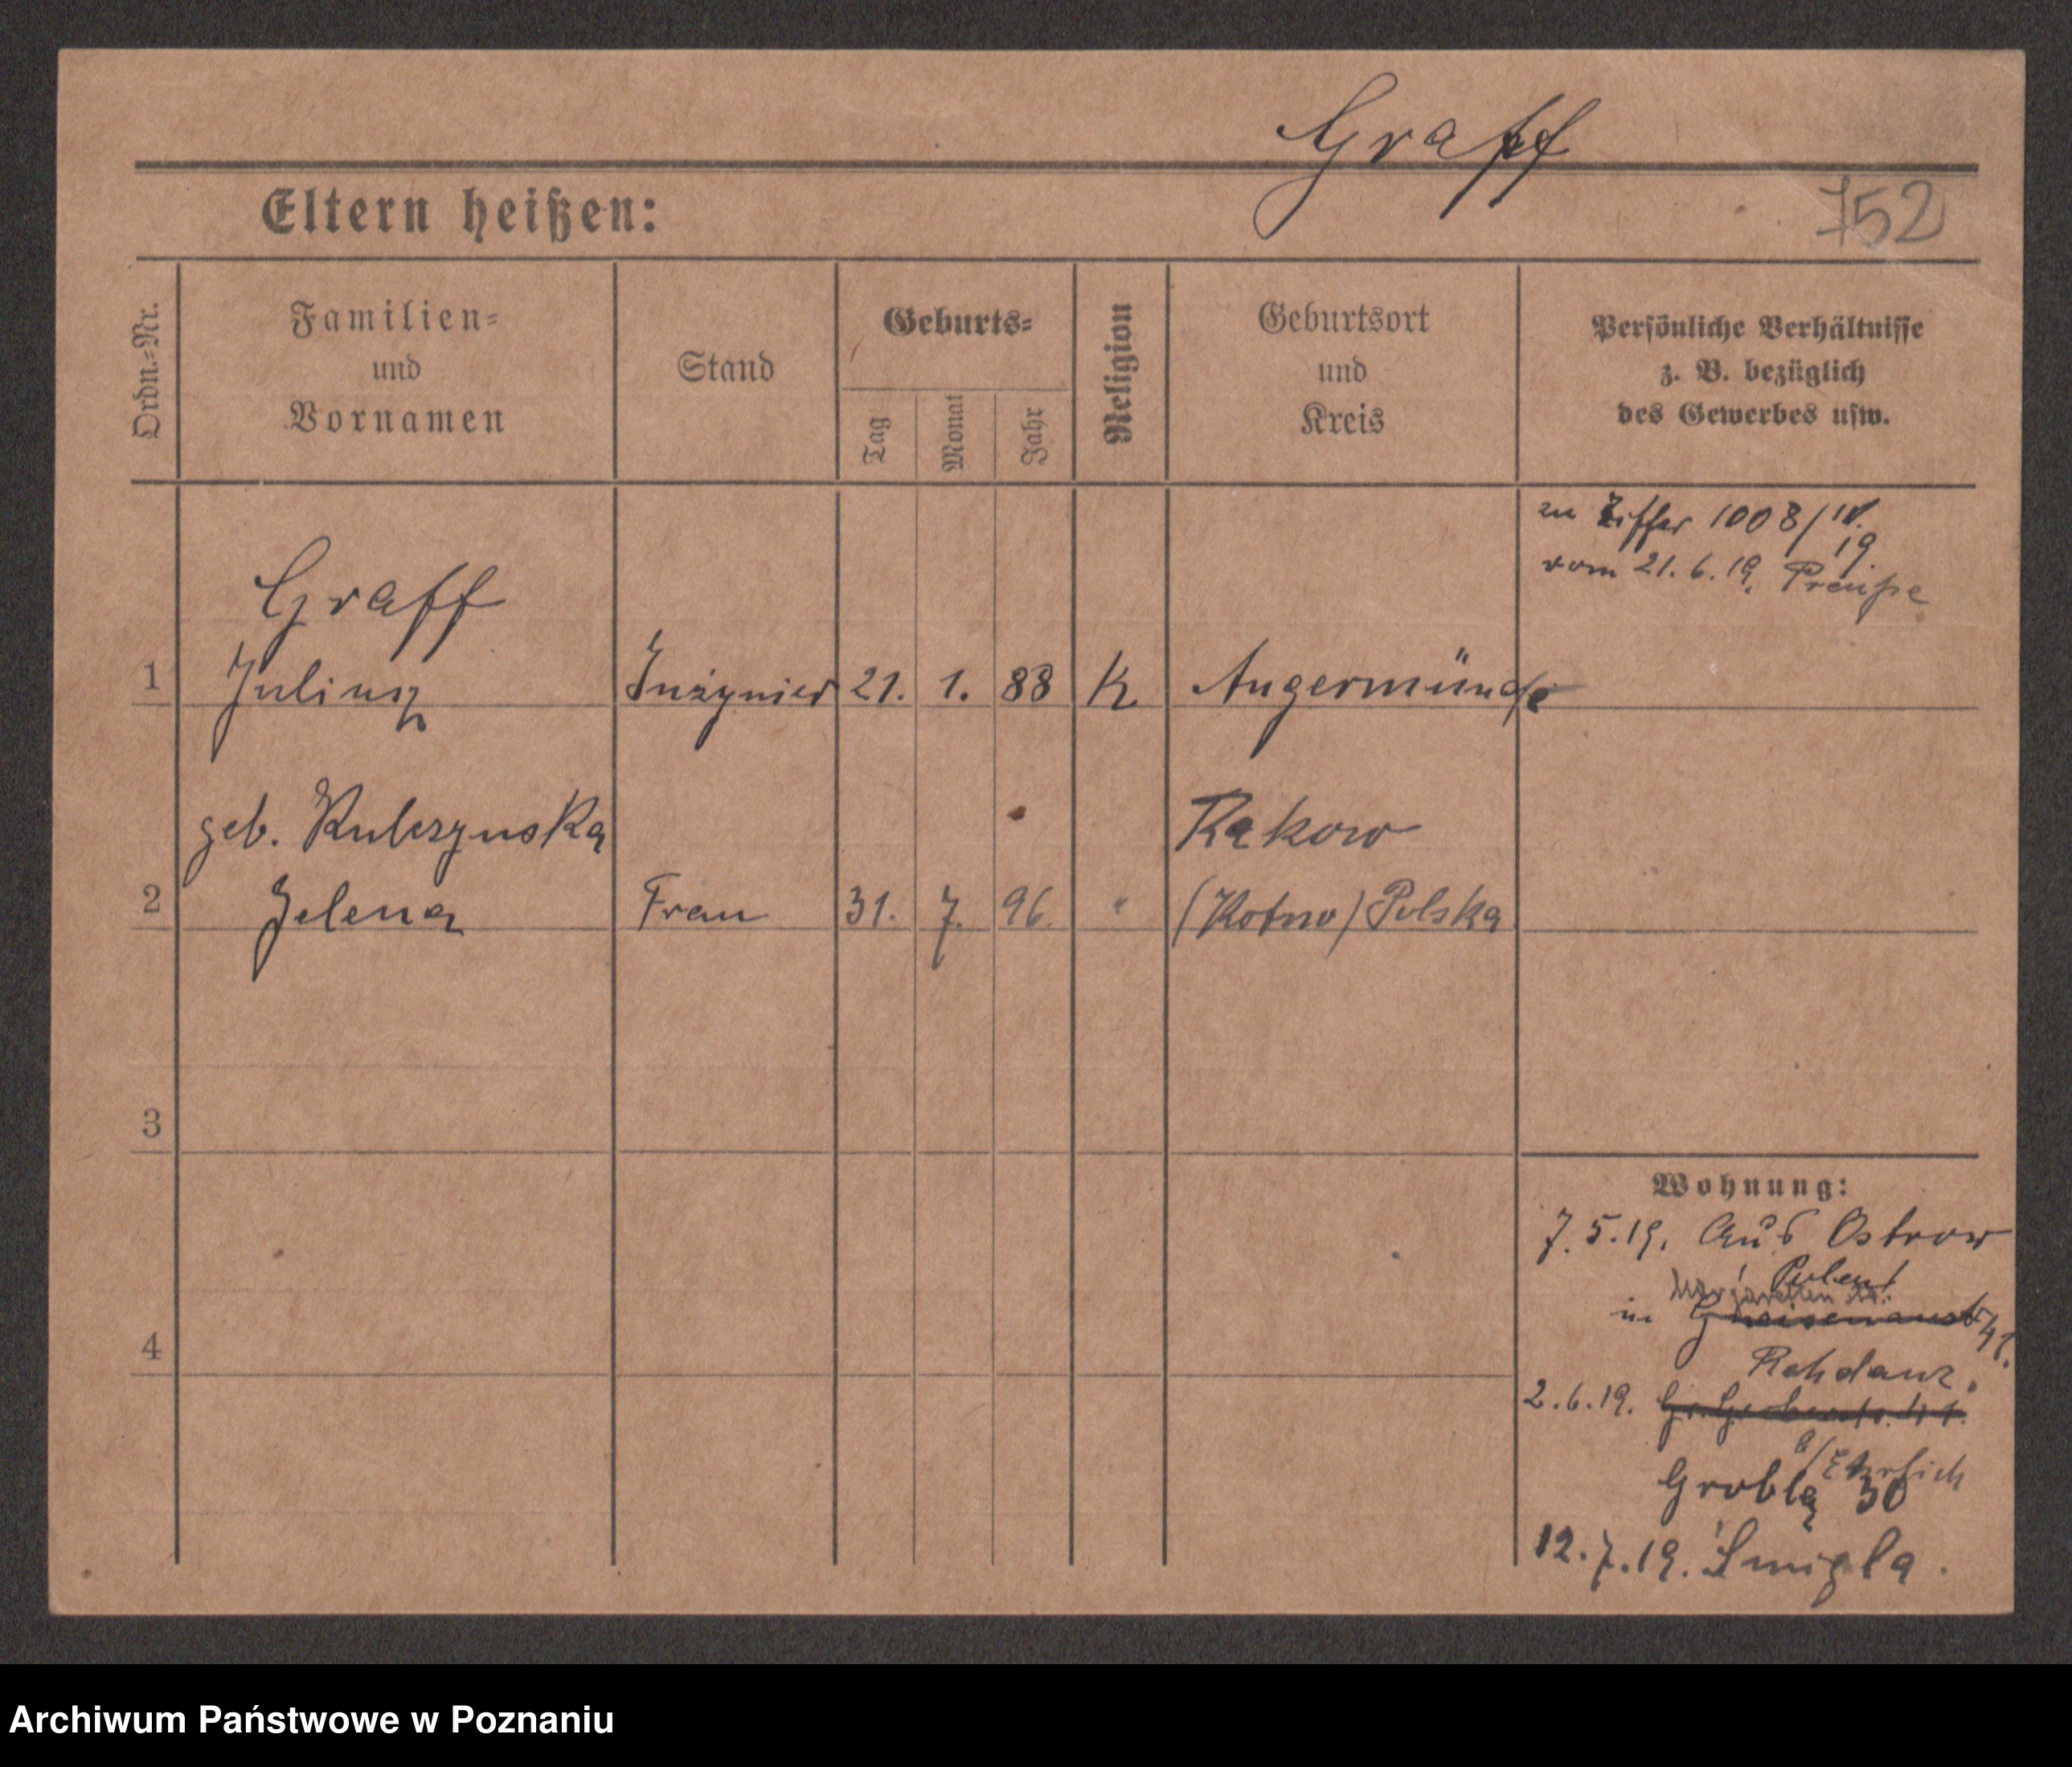 Graff
Eltern heißen:
752
Ordn.-Nr.
Familien-
und
Vornamen
Stand
Geburts-
Tag
Monat
Jahr
Religion
Geburtsort
und
Kreis
Persönliche Verhältnisse
z. B. bezüglich
des Gewerbes usw.
zu Ziffer 1008/IV.
19.
vom 21.6.19. Preuße
Graff
1 Juliusz Inżynier 21. 1. 88 K Angermünde
geb. Kulczynska Rakow
2 Helena Frau 31. 7. 96 " (Kotno) Polska
3
4
Wohnung:
7.5.19. Aus Ostrow
in Gneisenaustr 41.
Rohdanz.
2.6.19. Gr. Gerberstr. 41.
b/Ehrlich
Grobla 30
12.7.19. Śmigla.
Archiwum Państwowe w Poznaniu